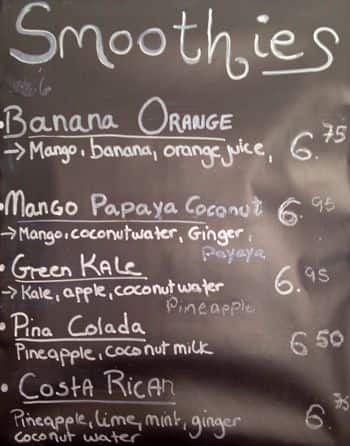 Smoothies
• Banana ORANGE
→ Mango, banana, orange juice, 6.75
• MANGO PAPAYA COCONUT 6.95
→ Mango, coconutwater, Ginger,
Papaya
• Green KALE
→ Kale, apple, coconut water 6.95
Pineapple
• Pina Colada
Pineapple, coconut milk 6 50
• COSTA RICAN
Pineapple, lime, mint, ginger 6.75
coconut water